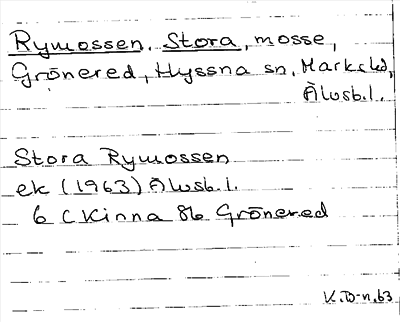 Rymossen, Stora, mosse,
Grönered, Hyssna sn, Marks hd,
Älvsb.l.
Stora Rymossen
ek (1963) Älvsb.l.
6 C Kinna 8b Grönered
K.D-n.63